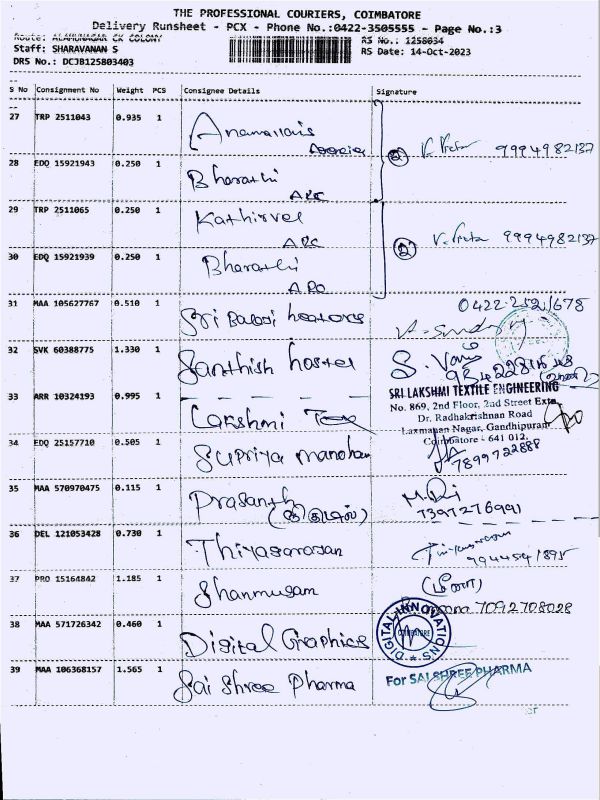 THE PROFESSIONAL COURIERS, COIMBATORE
Delivery Runsheet - PCX - Phone No.:0422-3505555 - Page No.:3
Route: ALAMUNAGAR CK COLONY
RS No.: 1258034
Staff: SHARAVANAN S
RS Date: 14-Oct-2023
DRS No.: DCJB125803403
S No Consignment No Weight PCS Consignee Details Signature
27 TRP 2511043 0.935 1
2 9994982137
28 EDQ 15921943 0.250 1 Bharathi
29 TRP 2511065 0.250 1 Kathirvel
2 9994982137
30 EDQ 15921939 0.250 1 Bharathi
31 MAA 105627767 0.510 1 Sri Balaji
0422-2521678
32 SVK 60388775 1.330 1 Santhish hostel
SRI LAKSHMI TEXTILE ENGINEERING
No. 869, 2nd Floor, 2nd Street Extn.
Dr. Radhakrishnan Road
Laxmanan Nagar, Gandhipuram
Coimbatore - 641 012.
33 ARR 10324193 0.995 1 Lakshmi Tex
34 EDQ 25157710 0.505 1 Supriya Manohar
7899722888
35 MAA 570970475 0.115 1 Prasanth
7397276991
36 DEL 121053428 0.730 1 Thiyagarasan
37 PRO 15164842 1.185 1 Shanmugam
7092708028
38 MAA 571726342 0.460 1 Digital Graphics
DIGITAL INNOVATIONS
COIMBATORE
39 MAA 106368157 1.565 1 Sai Shree Pharma
For SAI SHREE PHARMA